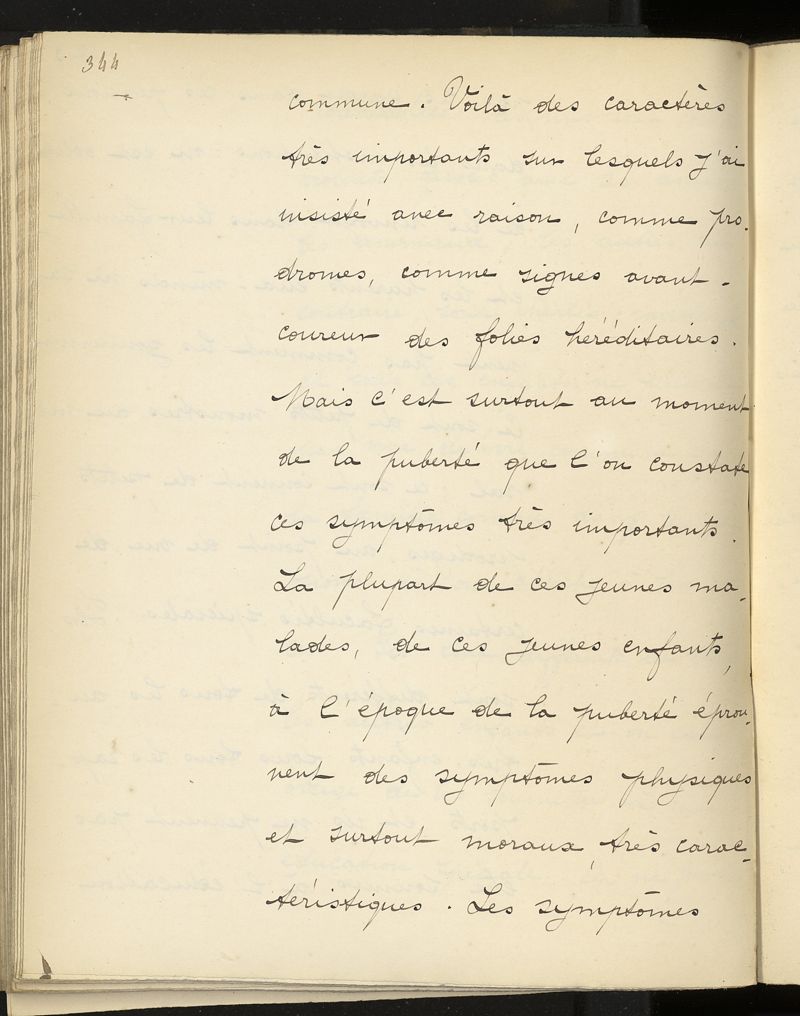 344
commune. Voilà des caractères
très importants sur lesquels j'ai
insisté avec raison, comme pro-
dromes, comme signes avant-
coureur des folies héréditaires.
Mais c'est surtout au moment
de la puberté que l'on constate
ces symptômes très importants.
La plupart de ces jeunes ma-
lades, de ces jeunes enfants,
à l'époque de la puberté éprou-
vent des symptômes physiques
et surtout moraux, très carac-
téristiques. Les symptômes